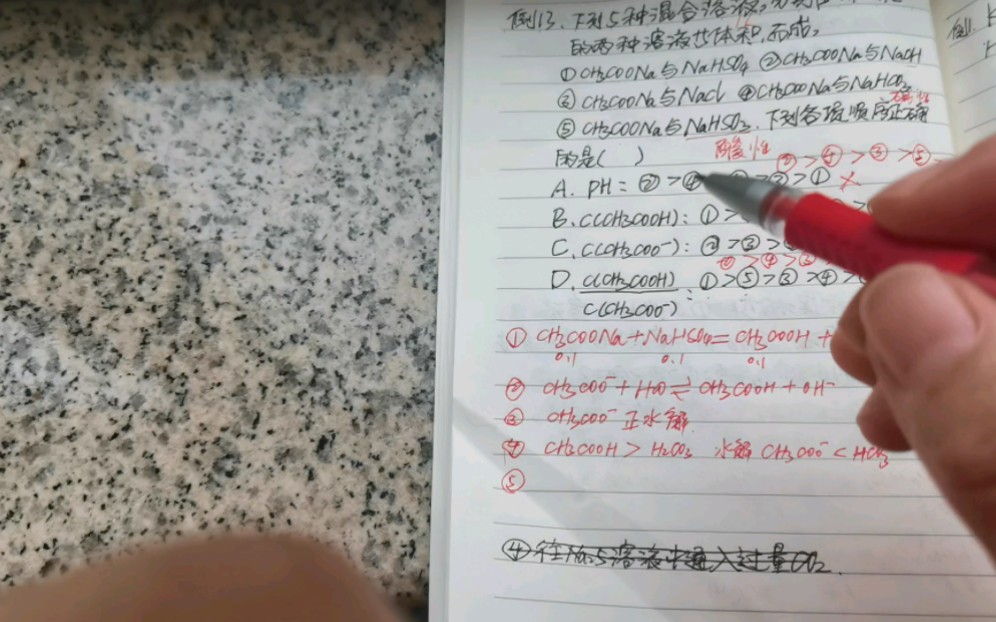 例13. 下列5种混合溶液,
的两种溶液等体积.而成,
①CH3COONa与NaHSO4 ②CH3COONa与NaOH
③CH3COONa与NaCl ④CH3COONa与NaHCO3
⑤CH3COONa与NaHSO3. 下列各项顺序正确
的是( ) 酸性 ②>④>③>⑤>
A. PH: ②>④ >①×
B. C(CH3COOH): ①>
C. C(CH3COO⁻): ②>③>
②>④>③
D. C(CH3COOH) : ①>⑤>③>④>
C(CH3COO⁻)
① CH3COONa+NaHSO4=CH3COOH+
0.1 0.1 0.1
② CH3COO⁻+H2O⇌CH3COOH+OH⁻
③ CH3COO⁻正水解
④ CH3COOH>H2CO3 水解 CH3COO⁻<HCO3
⑤